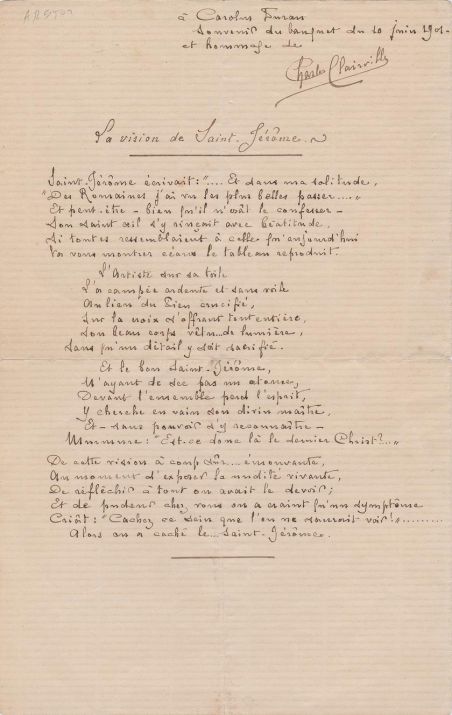 à Carolus Duran
Souvenir du banquet du 10 juin 1901.
et hommage de
Charles Clairville
La vision de Saint-Jérôme.
Saint-Jérôme écrivait: ".... Et dans ma solitude,
"Des Romaines j'ai vu les plus belles passer....,,
Et peut-être - bien qu'il n'osât le confesser -
Son saint œil s'y rinçait avec béatitude,
Si toutes ressemblaient à celle qu'aujourd'hui
Va vous montrer céans le tableau reproduit.
L'Artiste sur sa toile
L'a campée ardente et sans voile
Au lieu du Dieu crucifié,
Sur la croix s'offrant tout entière,
Son beau corps vêtu... de lumière,
Sans qu'un détail y soit sacrifié.
Et le bon Saint-Jérôme,
N'ayant de sec pas un atome,
Devant l'ensemble perd l'esprit,
Y cherche en vain son divin maître,
Et - sans pouvoir s'y reconnaître -
Murmure: "Est-ce donc là le dernier Christ?..,,
De cette vision à coup sûr... émouvante,
Au moment d'exposer la nudité vivante,
De réfléchir à tout on avait le devoir;
Et de pudeur chez vous on a craint qu'un symptôme
Criât: "Cachez ce sein que l'on ne saurait voir!,,.........
Alors on a caché le... Saint-Jérôme.